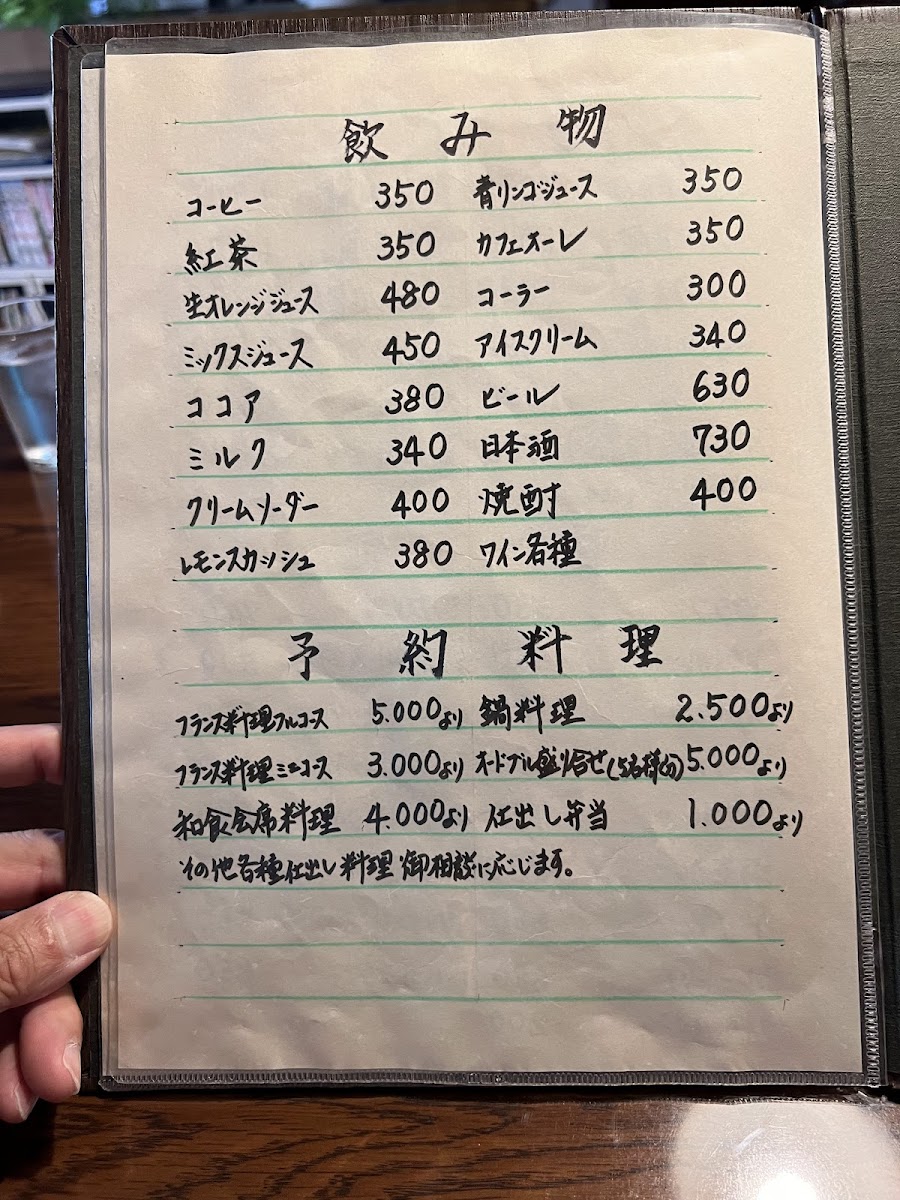 飲み物
コーヒー 350 青リンゴジュース 350
紅茶 350 カフェオーレ 350
生オレンジジュース 480 コーラー 300
ミックスジュース 450 アイスクリーム 340
ココア 380 ビール 630
ミルク 340 日本酒 730
クリームソーダー 400 焼酎 400
レモンスカッシュ 380 ワイン各種
予約料理
フランス料理フルコース 5.000より 鍋料理 2.500より
フランス料理ミニコース 3.000より オードブル盛り合せ(5名様分) 5.000より
和食会席料理 4.000より 仕出し弁当 1.000より
その他各種仕出し料理御相談に応じます。